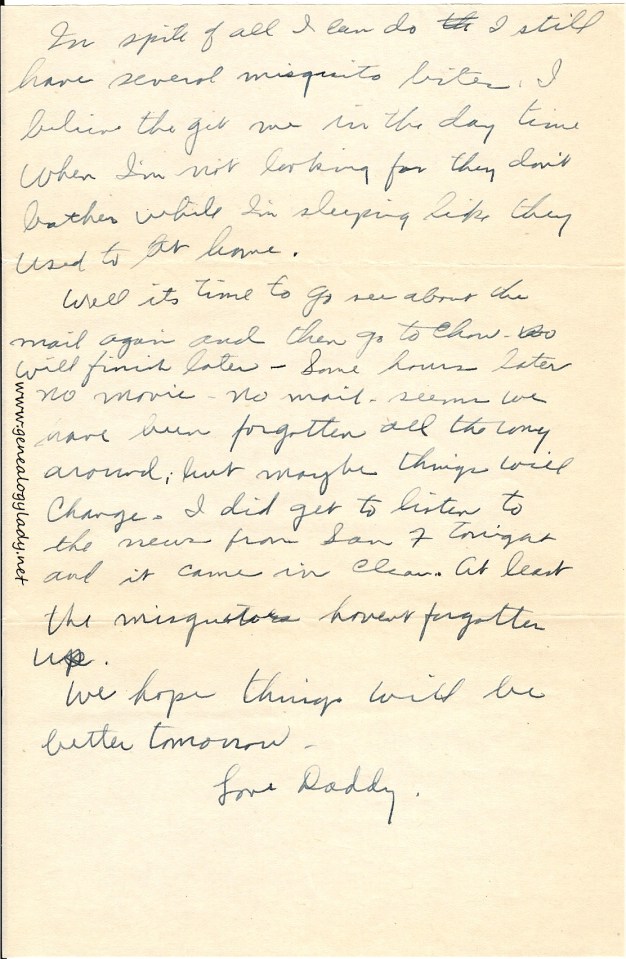 In spite of all I can do th I still
have several misquito bites. I
believe the get me in the day time
when I'm not looking for they don't
bather while I'm sleeping like they
used to at home.
Well its time to go see about the
mail again and then go to chow - so
will finish later - Some hours later
no movie - no mail - seems we
have been forgotten all the way
around; but maybe things will
change. I did get to listen to
the news from San F tonight
and it came in clean. At least
the misquitoes havent forgotten
us.
We hope things will be
better tomorrow -
Love Daddy.
www.genealogylady.net